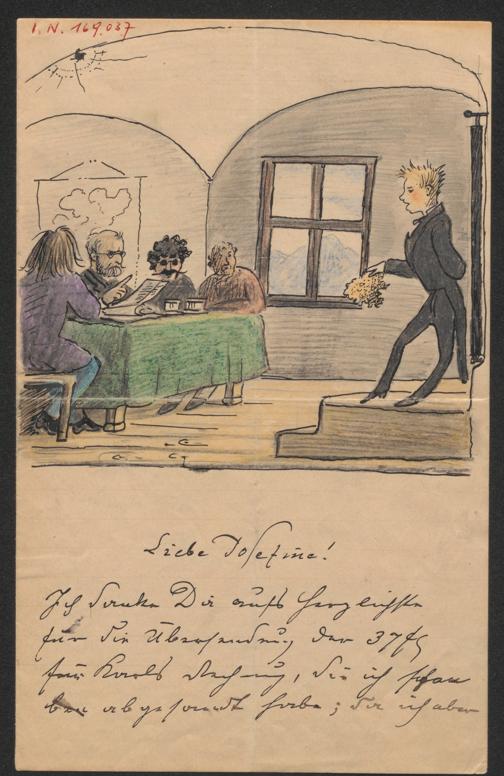 I. N. 169.037
Liebe Josefine!
Ich danke Dir aufs herzlichste
für die Übersendung der 37 f
für Karls Rechnung, die ich schon
abgesandt habe; da ich aber